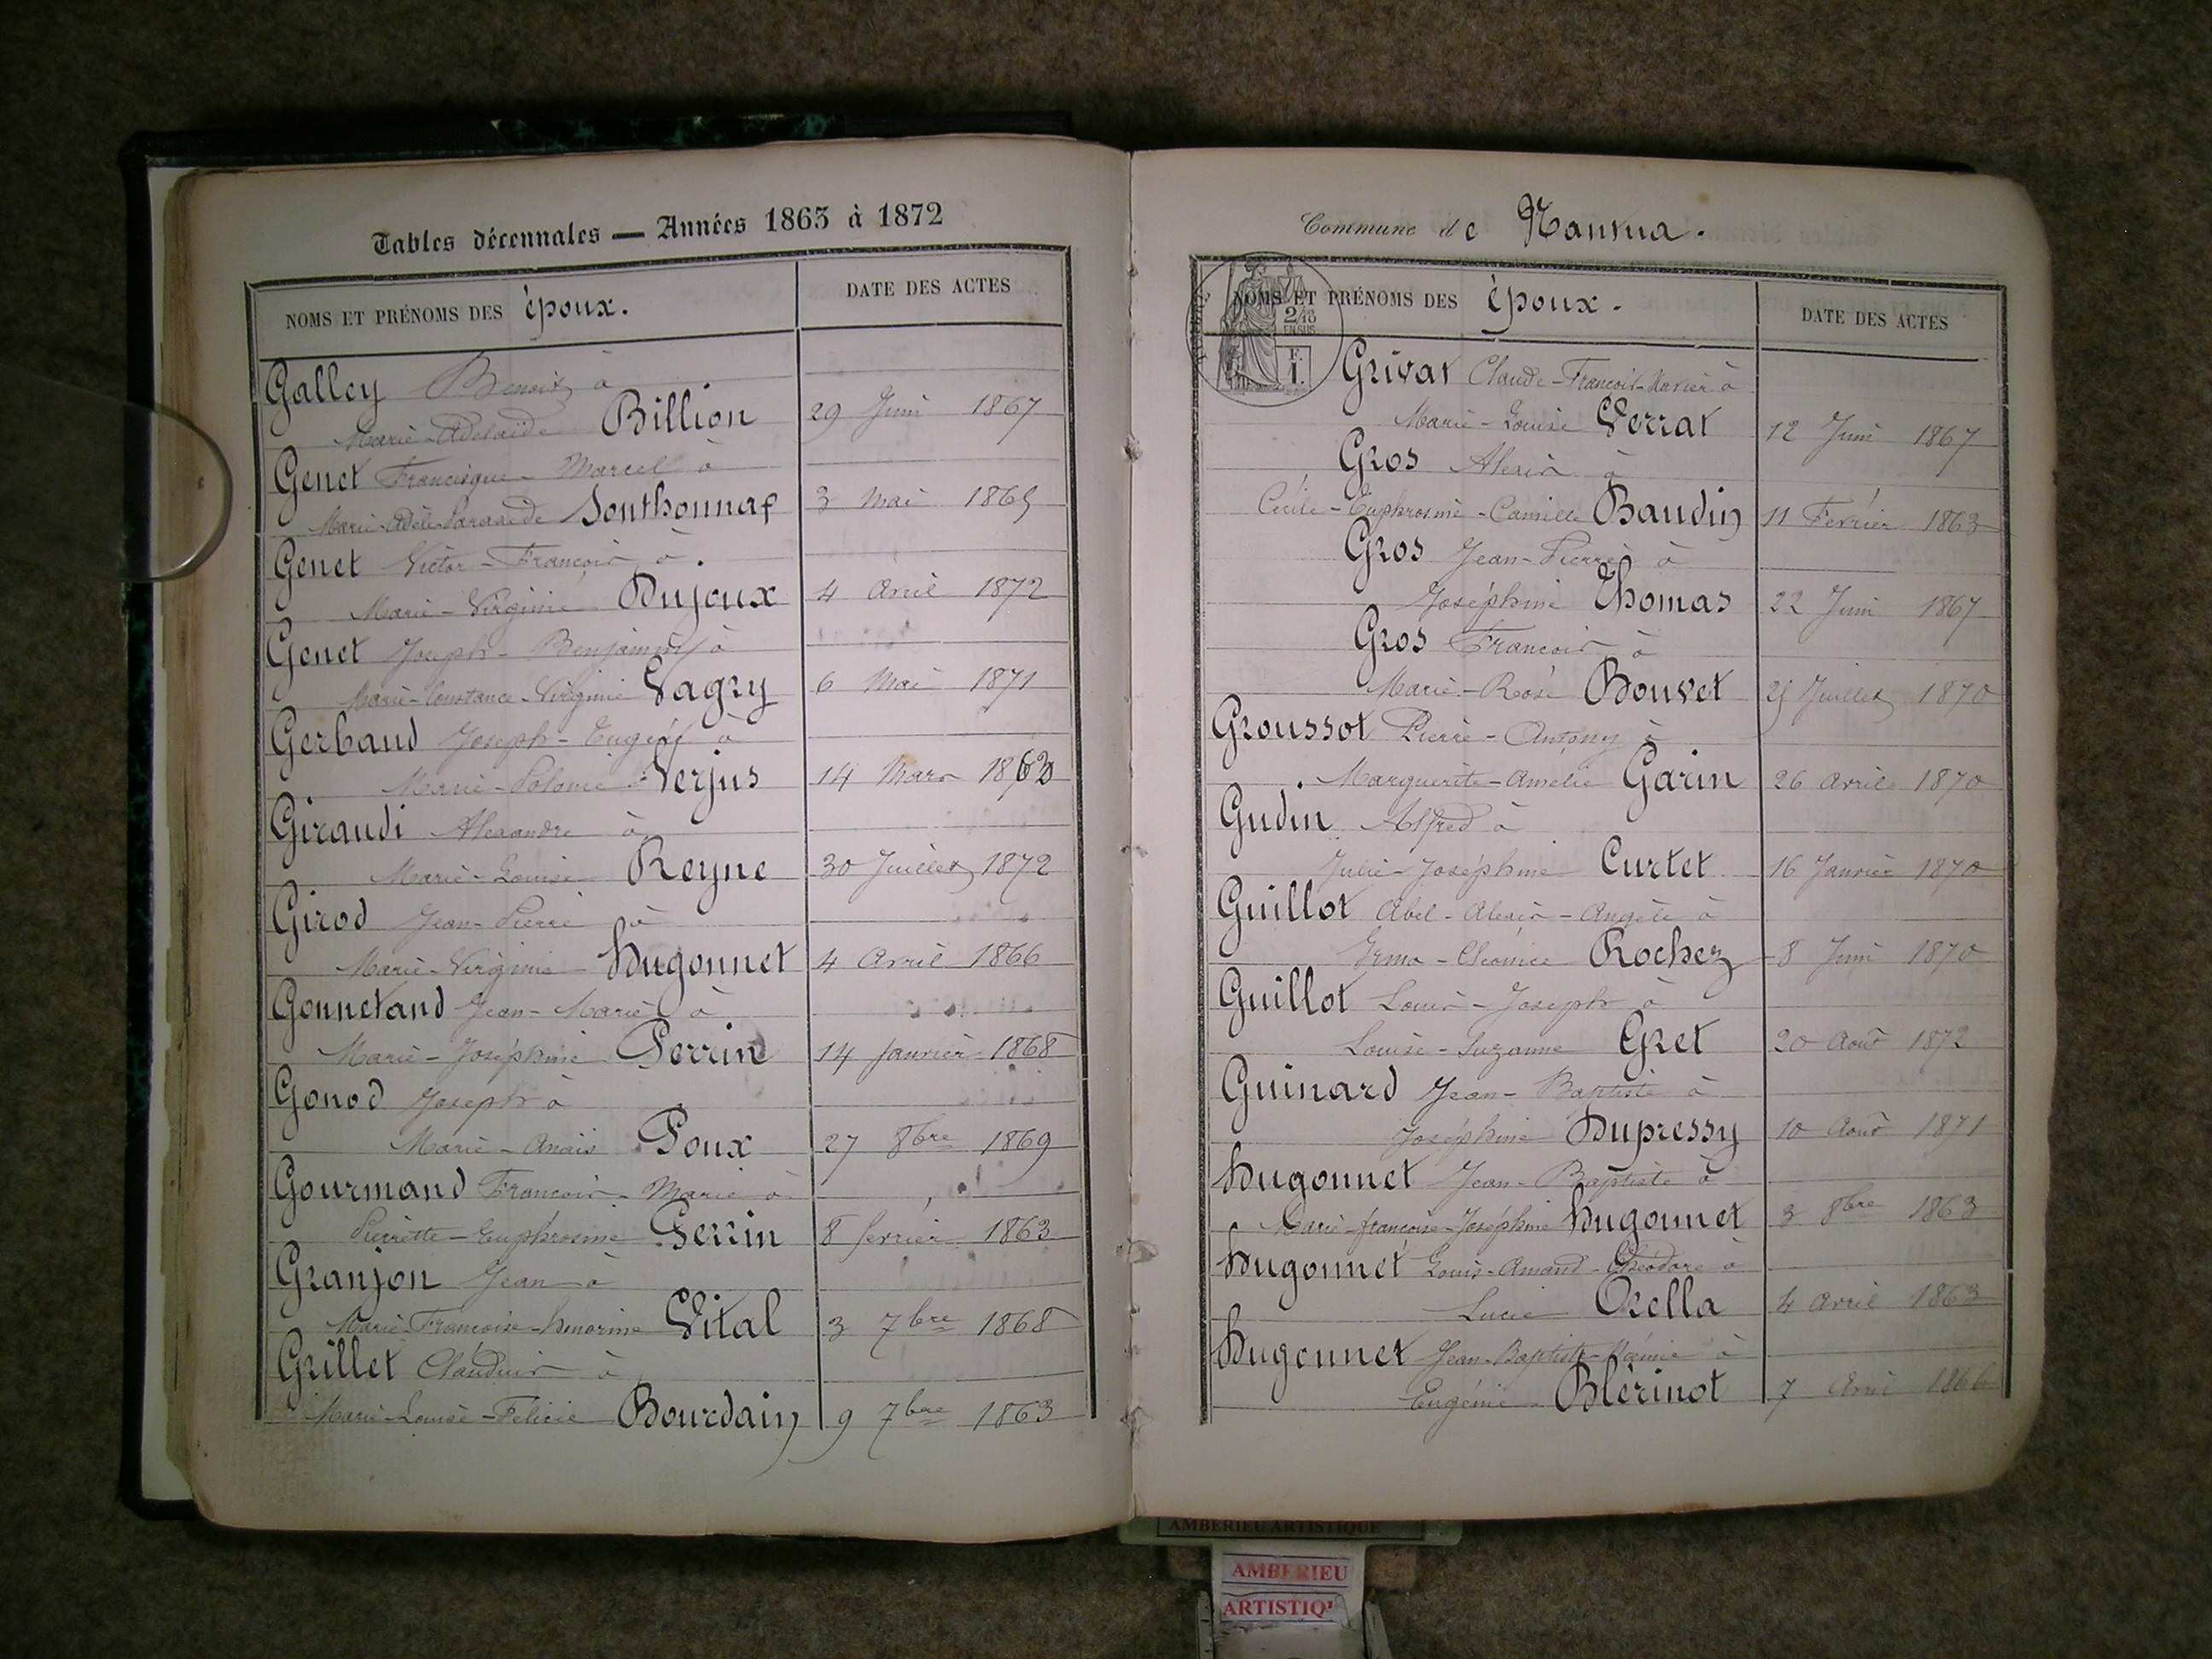 Tables décennales — Années 1863 à 1872
NOMS ET PRÉNOMS DES époux.
DATE DES ACTES
Galley Benoit à
Marie-Adelaïde Billion 29 Juin 1867
Genet Francisque-Marcel à
Marie-Adèle Sonthonnax 3 Mai 1865
Genet Victor-François à
Marie-Virginie Dujoux 4 Avril 1872
Genet Joseph-Benjamin à
Marie-Constance-Virginie Vagry 6 Mai 1871
Gerbaud Joseph-Eugène à
Marie Verjus 14 Mars
Giraudi Alexandre à
Marie-Louise Reyne 30 Juillet 1872
Girod Jean-Pierre à
Marie-Virginie Hugonnet 4 Avril 1866
Gonnetand Jean-Marie à
Marie-Joséphine Perrin 14 Janvier 1868
Gonod Joseph à
Marie-Anaïs Poux 27 8bre 1869
Gourmand François-Marie à
Pierrette-Euphrosine Perrin 8 février 1863
Granjon Jean à
Marie-Françoise-honorine Vital 3 7bre 1868
Grillet Claudius à
Marie-Louise-Félicie Bourdain 9 7bre 1863
Commune de Nantua.
NOMS ET PRÉNOMS DES époux.
DATE DES ACTES
2/10
EN SUS
F.
1.
Grivat Claude-François-Xavier à
Marie-Louise Verrat 12 Juin 1867
Gros Alexis à
Cécile-Euphrosine-Camille Baudin 11 Février 1863
Gros Jean-Pierre à
Joséphine Thomas 22 Juin 1867
Gros François à
Marie-Rose Bouvet Juillet 1870
Groussot Pierre-Antony à
Marguerite-Amélie Garin 26 Avril 1870
Gudin Alfred à
Julie-Joséphine Curtet 16 Janvier 1870
Guillot Abel-Alexis-Angèle à
Irma-Cléonice Rochez 8 Juin 1870
Guillot Louis-Joseph à
Louise-Suzanne Gret 20 Août 1872
Guinard Jean-Baptiste à
Joséphine Dupressy 10 Août 1871
Hugonnet Jean-Baptiste à
Marie-françoise-Joséphine Hugonnet 3 8bre 1863
Hugonnet Louis-Amand-Théodore à
Lucie Orella 4 Avril 1863
Hugonnet Jean-Baptiste à
Eugénie Blérinot 7 1866
AMBERIEU ARTISTIQUE
AMBERIEU
ARTISTIQU